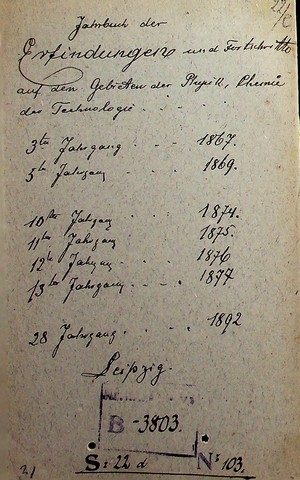 22/c
Jahrbuch der
Erfindungen und Fortschritte
auf den Gebieten der Physik, Chemie
der Technologie - - - -
3ter Jahrgang . . . 1867.
5ter Jahrgang . . . 1869.
10ter Jahrgang . . . 1874.
11ter Jahrgang . . . 1875.
12te Jahrgang . . . 1876
13ter Jahrgang . . . 1877
28 Jahrgang . . . 1892
Leipzig.
B-3803.
S: 22 d No 103.
21